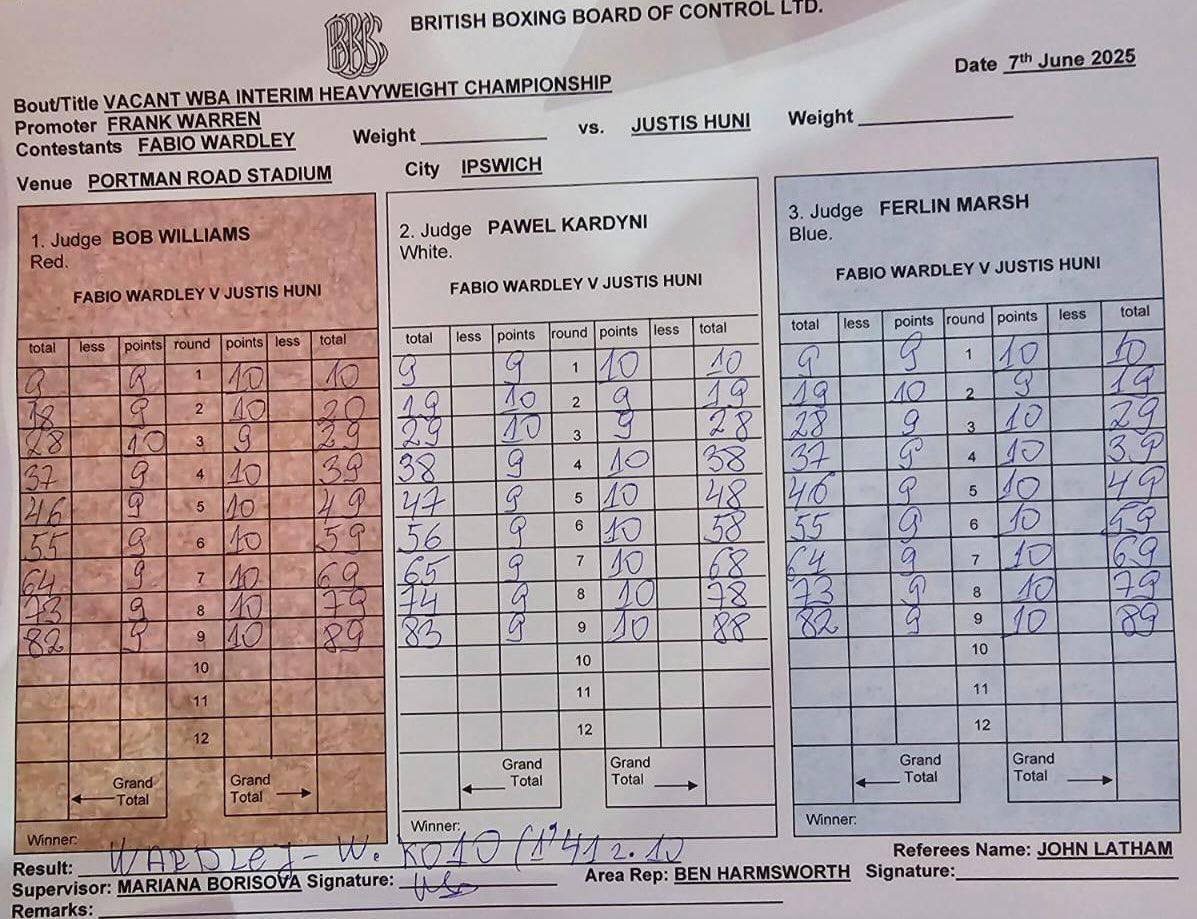 BBBC
BRITISH BOXING BOARD OF CONTROL LTD.
Date 7th June 2025
Bout/Title VACANT WBA INTERIM HEAVYWEIGHT CHAMPIONSHIP
Promoter FRANK WARREN
Contestants FABIO WARDLEY Weight vs. JUSTIS HUNI Weight
Venue PORTMAN ROAD STADIUM City IPSWICH
1. Judge BOB WILLIAMS
Red.
FABIO WARDLEY V JUSTIS HUNI
total less points round points less total
9 9 1 10 10
18 9 2 10 20
28 10 3 9 29
37 9 4 10 39
46 9 5 10 49
55 9 6 10 59
64 9 7 10 69
73 9 8 10 79
82 9 9 10 89
10
11
12
Grand Total
Grand Total
Winner:
2. Judge PAWEL KARDYNI
White.
FABIO WARDLEY V JUSTIS HUNI
total less points round points less total
9 9 1 10 10
19 10 2 9 19
29 10 3 9 28
38 9 4 10 38
47 9 5 10 48
56 9 6 10 58
65 9 7 10 68
74 9 8 10 78
83 9 9 10 88
10
11
12
Grand Total
Grand Total
Winner:
3. Judge FERLIN MARSH
Blue.
FABIO WARDLEY V JUSTIS HUNI
total less points round points less total
9 9 1 10 10
19 10 2 9 19
28 9 3 10 29
37 9 4 10 39
46 9 5 10 49
55 9 6 10 59
64 9 7 10 69
73 9 8 10 79
82 9 9 10 89
10
11
12
Grand Total
Grand Total
Winner:
Result: WARDLEY - W. KO10 (1'41 2.10
Referees Name: JOHN LATHAM
Supervisor: MARIANA BORISOVA Signature: Area Rep: BEN HARMSWORTH Signature:
Remarks: